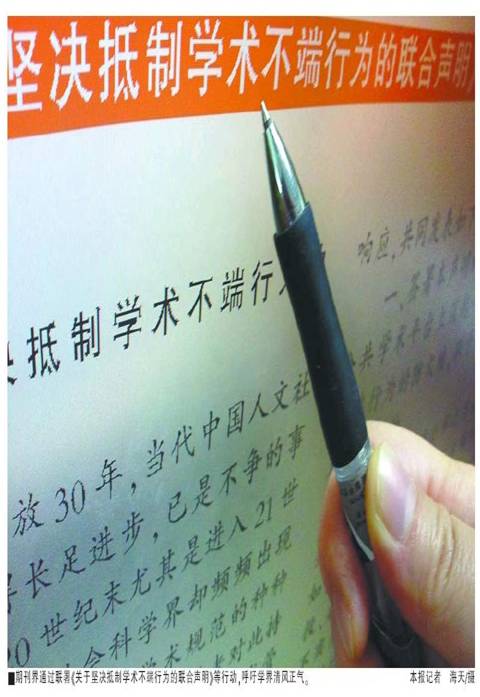 坚决抵制学术不端行为的联合声明
决抵制学术不端行
响应,共同发表如下
一、签署本声明
共学术平台
放30年,当代中国人文社
长足进步,已是不争的事
20世纪末尤其是进入21世
会科学界却频频出现
学术规范的种种
对此持
■期刊界通过联署《关于坚决抵制学术不端行为的联合声明》等行动,呼吁学界清风正气。
本报记者 海天/摄